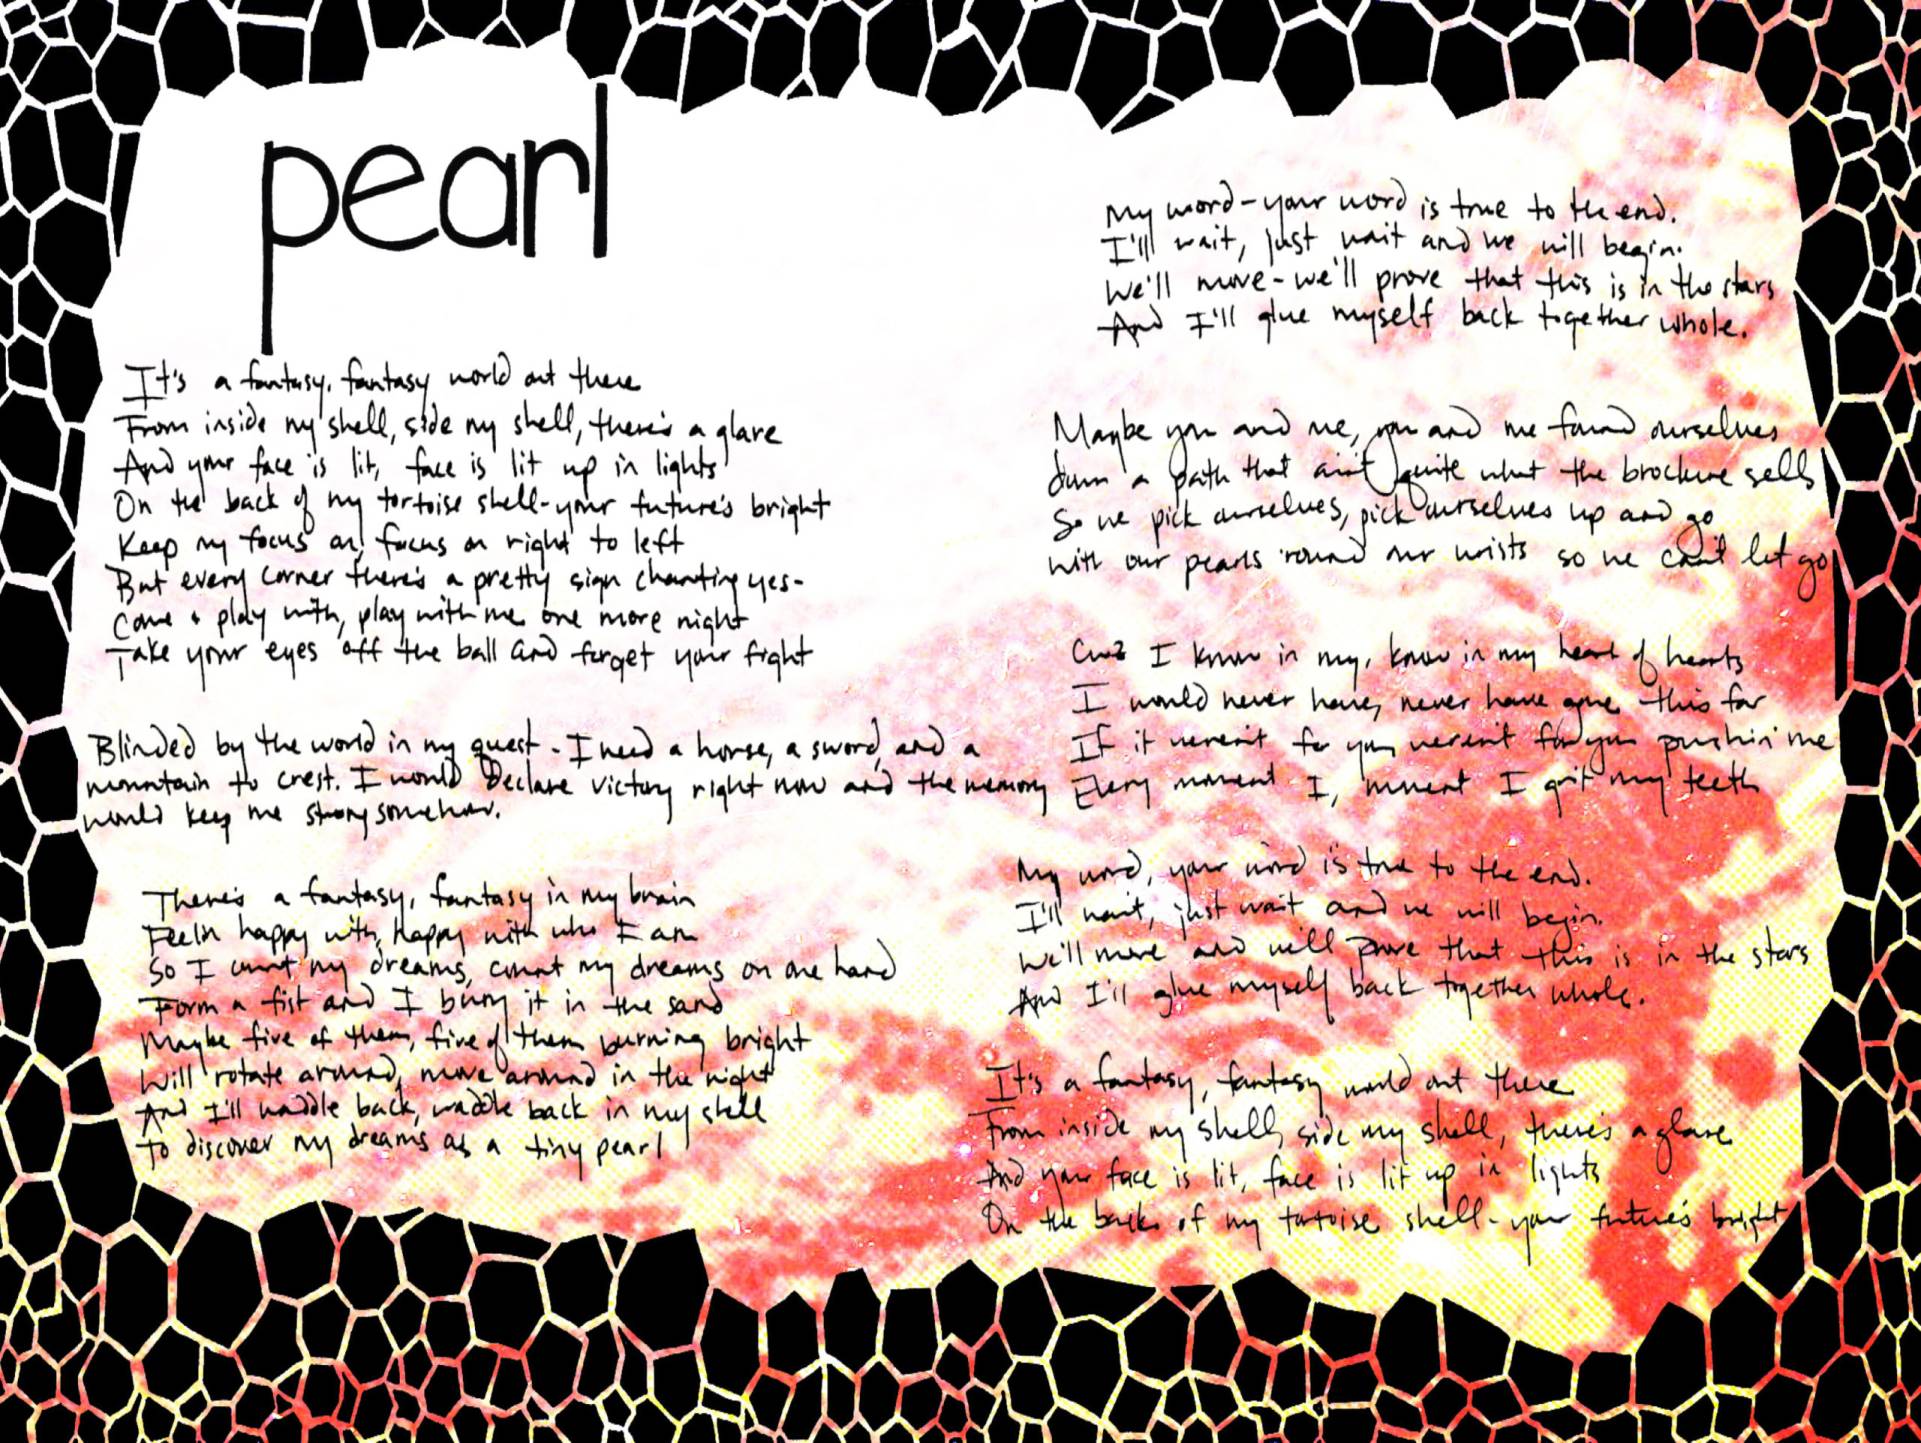 pearl
It's a fantasy, fantasy world out there
From inside my shell, side my shell, there's a glare
And your face is lit, face is lit up in lights
On the back of my tortoise shell-your future's bright
Keep my focus on, focus on right to left
But every corner there's a pretty sign chanting yes-
Come & play with, play with me one more night
Take your eyes off the ball and forget your fight
Blinded by the world in my quest - I need a horse, a sword, and a
mountain to crest. I would declare victory right now and the memory
would keep me strong somehow.
There's a fantasy, fantasy in my brain
Feelin happy with, happy with who I am
So I count my dreams, count my dreams on one hand
Form a fist and I bury it in the sand
Maybe five of them, five of them burning bright
Will rotate around, move around in the night
And I'll waddle back, waddle back in my shell
To discover my dreams as a tiny pearl
My word-your word is true to the end.
I'll wait, just wait and we will begin.
We'll move-we'll prove that this is in the stars
And I'll glue myself back together whole.
Maybe you and me, you and me found ourselves
down a path that ain't quite what the brochure sells
So we pick ourselves, pick ourselves up and go
with our pearls 'round our wrists so we can't let go
Cuz I know in my, know in my heart of hearts
I would never have, never have gone this far
If it weren't for you, weren't for you pushin' me
Every moment I, moment I grit my teeth
My word, your word is true to the end.
I'll wait, just wait and we will begin.
We'll move and we'll prove that this is in the stars
And I'll glue myself back together whole.
It's a fantasy, fantasy world out there
From inside my shell, side my shell, there's a glare
And your face is lit, face is lit up in lights
On the back of my tortoise shell-your future's bright